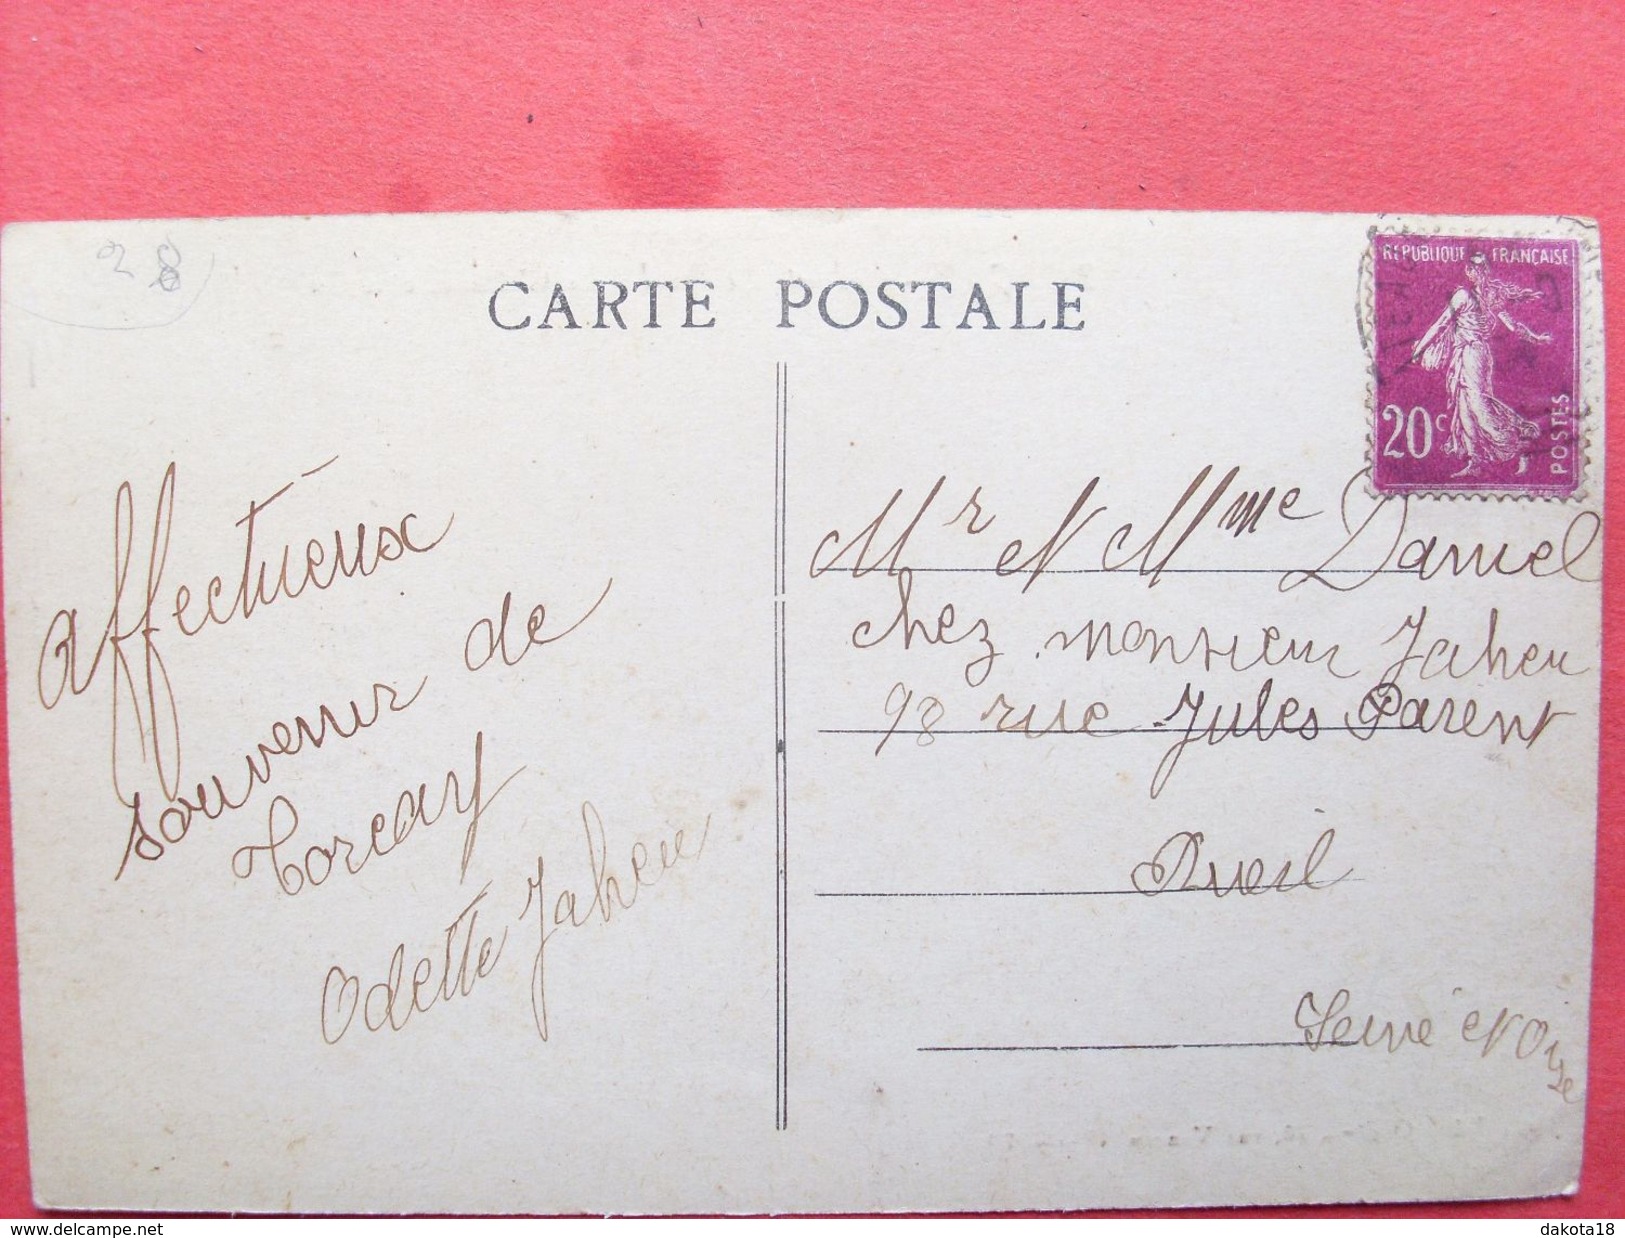 28
CARTE POSTALE
REPUBLIQUE FRANÇAISE
20c
POSTES
affectueux
souvenir de
Torcay
Odette Jaheu
Mr et Mme Daniel
chez monsieur Jaheu
98 rue Jules Parent
Rueil
Seine et Oise
delcampe.net
dakota18